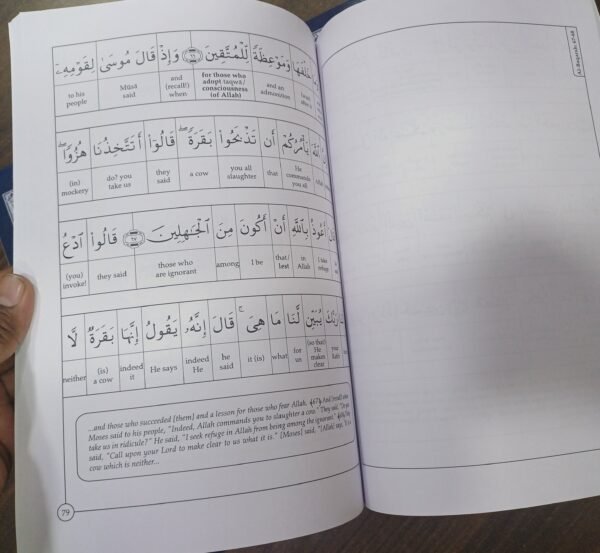 خَلْفَهَا وَمَوْعِظَةً لِّلْمُتَّقِينَ ﴿٦٦﴾ وَإِذْ قَالَ مُوسَىٰ لِقَوْمِهِۦٓ
and an admonition | for those who adopt taqwā / consciousness (of Allah) | and (recall!) when | Mūsā said | to his people
ٱللَّهَ يَأْمُرُكُمْ أَن تَذْبَحُوا۟ بَقَرَةً ۖ قَالُوٓا۟ أَتَتَّخِذُنَا هُزُوًا ۖ
He commands you all | that | you all slaughter | a cow | they said | do? you take us | (in) mockery
أَعُوذُ بِٱللَّهِ أَنْ أَكُونَ مِنَ ٱلْجَٰهِلِينَ ﴿٦٧﴾ قَالُوا۟ ٱدْعُ
I take refuge | in Allah | that/ lest | I be | among | those who are ignorant | they said | (you) invoke!
رَبَّكَ يُبَيِّن لَّنَا مَا هِىَ ۚ قَالَ إِنَّهُۥ يَقُولُ إِنَّهَا بَقَرَةٌ لَّا
your Rabb | (so that) He makes clear | for us | what | it (is) | he said | indeed He | He says | indeed it | (is) a cow | neither
...and those who succeeded [them] and a lesson for those who fear Allah. (67) And [recall] when
Moses said to his people, "Indeed, Allah commands you to slaughter a cow." They said, "Do you
take us in ridicule?" He said, "I seek refuge in Allah from being among the ignorant." They
said, "Call upon your Lord to make clear to us what it is." [Moses] said, "[Allah] says, 'It is a
cow which is neither...
79
Al-Baqarah: 67-68